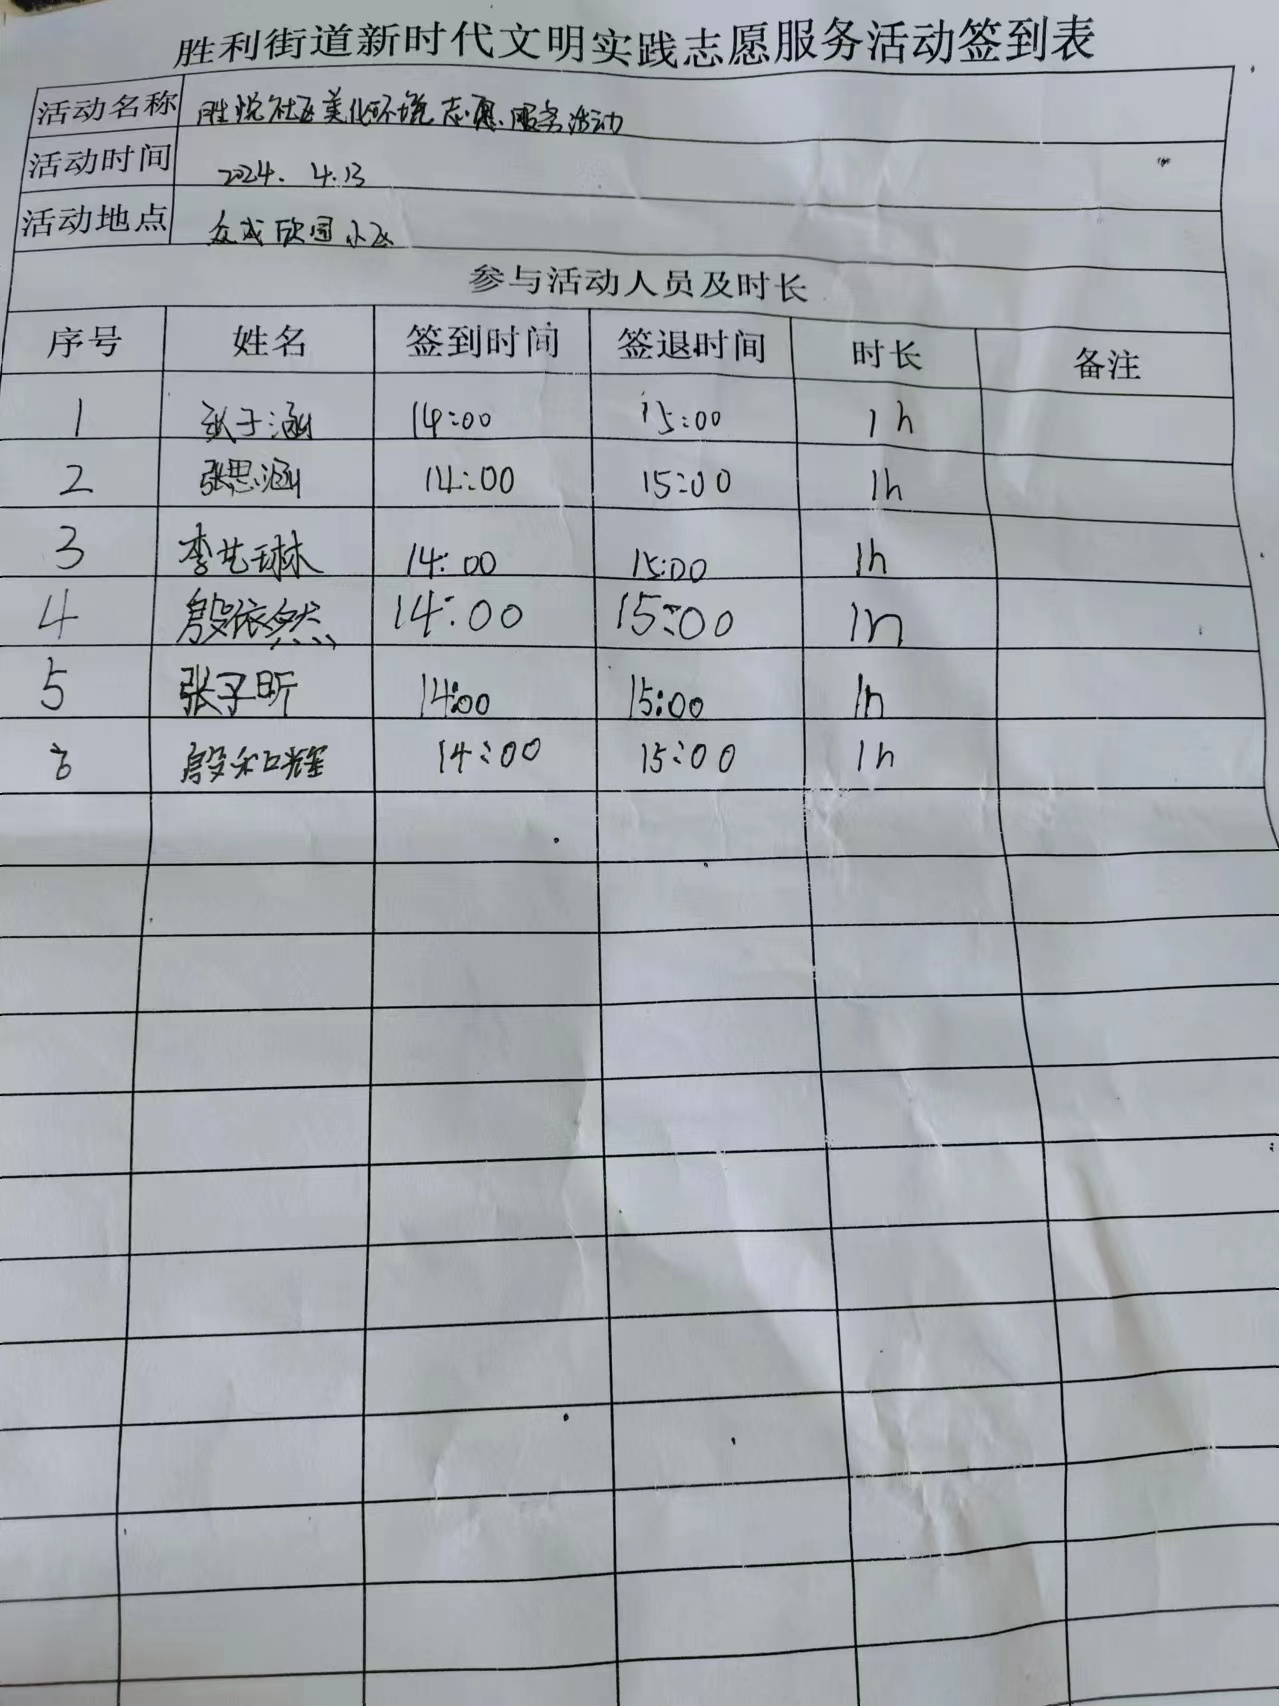 胜利街道新时代文明实践志愿服务活动签到表
活动名称 胜悦社区美化环境志愿服务活动
活动时间 2024. 4.13
活动地点 众成欣园小区
参与活动人员及时长
序号 姓名 签到时间 签退时间 时长 备注
1 张于涵 14:00 15:00 1h
2 张思涵 14:00 15:00 1h
3 李艺琳 14:00 15:00 1h
4 殷依然 14:00 15:00 1h
5 张子昕 14:00 15:00 1h
6 殷和辉 14:00 15:00 1h